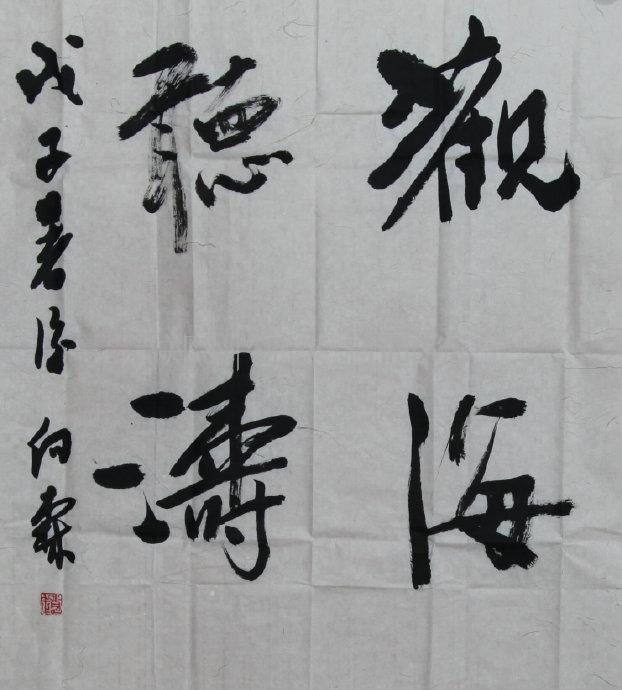 觀海
聽濤
戊子暑後 向霖